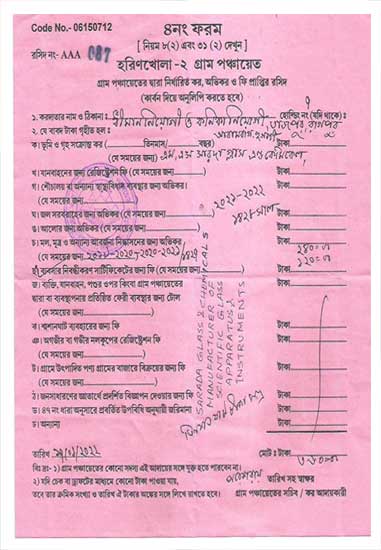 Code No.- 06150712
৪নং ফরম
[ নিয়ম ৮(২) এবং ৩১ (২) দেখুন ]
রসিদ নং- AAA 087
হরিণখোলা -২ গ্রাম পঞ্চায়েত
গ্রাম পঞ্চায়েতের দ্বারা নির্ধারিত কর, অভিকর ও ফি প্রাপ্তির রসিদ
(কার্বন দিয়ে অনুলিপি করতে হবে)
১. করদাতার নাম ও ঠিকানা : শ্রীমান নিয়োগী ও কনিকা নিয়োগী হোল্ডিং নং (যদি থাকে) :
২. যে বাবদ টাকা গৃহীত হল :
ক) ভূমি ও গৃহ সংক্রান্ত কর (তিনমাস/ বছর) টাকা
(যে সময়ের জন্য)
খ। যানবাহনের জন্য রেজিস্ট্রেশন ফি (যে সময়ের জন্য) টাকা
গ। শৌচালয় বা অন্যান্য স্বাস্থ্যবিধান ব্যবস্থার জন্য অভিকর:
(যে সময়ের জন্য) ২০২১-২০২২ টাকা
ঘ। জল সরবরাহের জন্য অভিকর (যে সময়ের জন্য) ১৪২৮ সাল টাকা
ঙ। আলোর জন্য অভিকর (যে সময়ের জন্য) টাকা
চ। মল, মূত্র ও অন্যান্য আবর্জনা নিষ্কাসনের জন্য অভিকর
(যে সময়ের জন্য) টাকা
ছ) ব্যবসার নিবন্ধীকরণ সার্টিফিকেটের জন্য ফি (যে সময়ের জন্য) টাকা
জ। ব্যক্তি, যানবাহন, পশুর ওপর কিংবা গ্রাম পঞ্চায়েতের
দ্বারা বা ব্যবস্থাপনার প্রতিষ্ঠিত ফেরী ব্যবস্থার জন্য টোল
(যে সময়ের জন্য) টাকা
ঝ। শ্মশানঘাট ব্যবহারের জন্য ফি টাকা
ঞ। অগভীর বা গভীর নলকূপের রেজিস্ট্রেশন ফি
(যে সময়ের জন্য) টাকা
ট। গ্রামে উৎপাদিত পণ্য গ্রামের বাজারে বিক্রয়ের জন্য ফি
(যে সময়ের জন্য) টাকা
ঠ। জনসাধারণের জ্ঞাতার্থে প্রদর্শিত বিজ্ঞাপন দেওয়ার জন্য ফি টাকা
ড। ৪৭ নং ধারা অনুসারে প্রবর্তিত উপবিধি অনুযায়ী জরিমানা টাকা
ঢ। অন্যান্য টাকা
SARADA GLASS & CHEMICALS
MANUFACTURER OF
SCIENTIFIC GLASS
APPARATUS &
INSTRUMENTS
তারিখ মোট : টাকা
বিঃ দ্রঃ- ১) গ্রাম পঞ্চায়েতের কোনো সদস্য এই আদায়ের সঙ্গে যুক্ত হতে পারবেন না।
২) যদি চেক বা ড্রাফটের মাধ্যমে কোনো টাকা পাওয়া যায়, তারিখ সহ স্বাক্ষর
তবে তার ক্রমিক সংখ্যা ও তারিখ ঐ টাকার অঙ্কের সঙ্গে লিখে রাখতে হবে। গ্রাম পঞ্চায়েতের সচিব / কর আদায়কারী